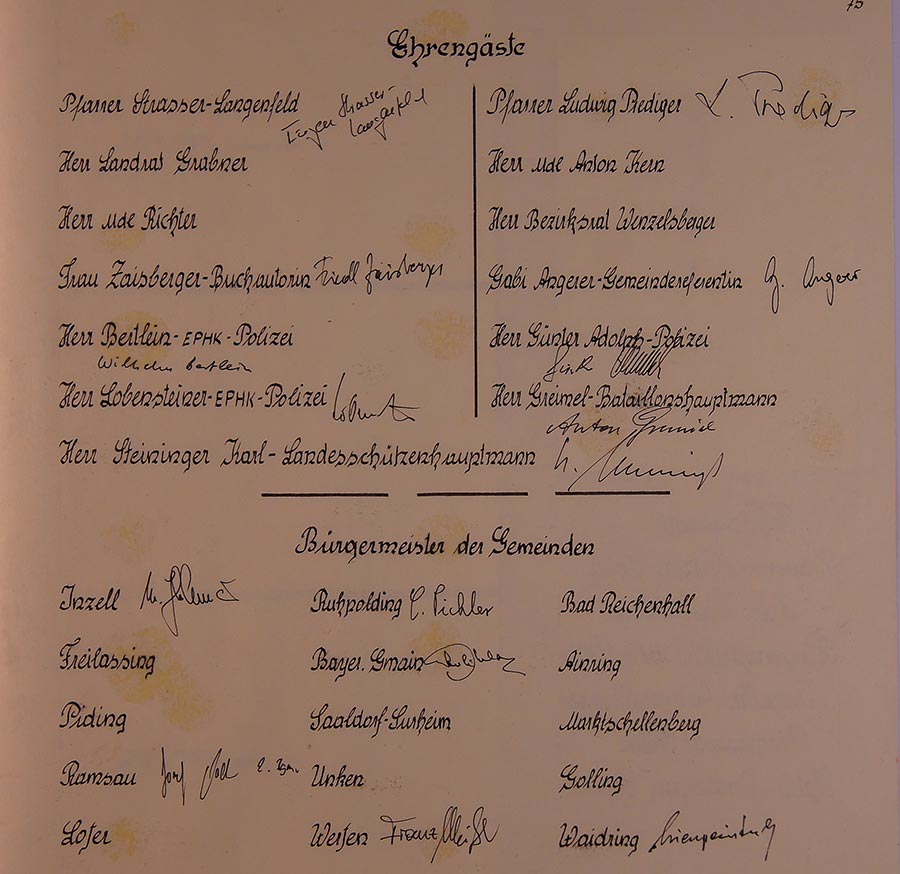 75
Ehrengäste
Pfarrer Strasser-Langenfeld
Eugen Strasser-
Langenfeld
Herr Landrat Grabner
Herr MdB Richter
Frau Zaisberger-Buchautorin Friedl Zaisberger
Herr Bertlein-EPHK-Polizei
Wilhelm Bertlein
Herr Lobensteiner-EPHK-Polizei
Pfarrer Ludwig Prediger L. Prediger
Herr MdB Anton Kern
Herr Bezirksrat Wenzelsberger
Gabi Angerer-Gemeindereferentin G. Angerer
Herr Günter Adolph-Polizei
Herr Greimel-Bataillonshauptmann
Anton Greimel
Herr Steininger Karl-Landesschützenhauptmann
Bürgermeister der Gemeinden
Inzell
Ruhpolding C. Pichler
Bad Reichenhall
Freilassing
Bayer. Gmain
Ainring
Piding
Saaldorf-Surheim
Marktschellenberg
Ramsau
Unken
Golling
Lofer
Werfen Franz Meißl
Waidring